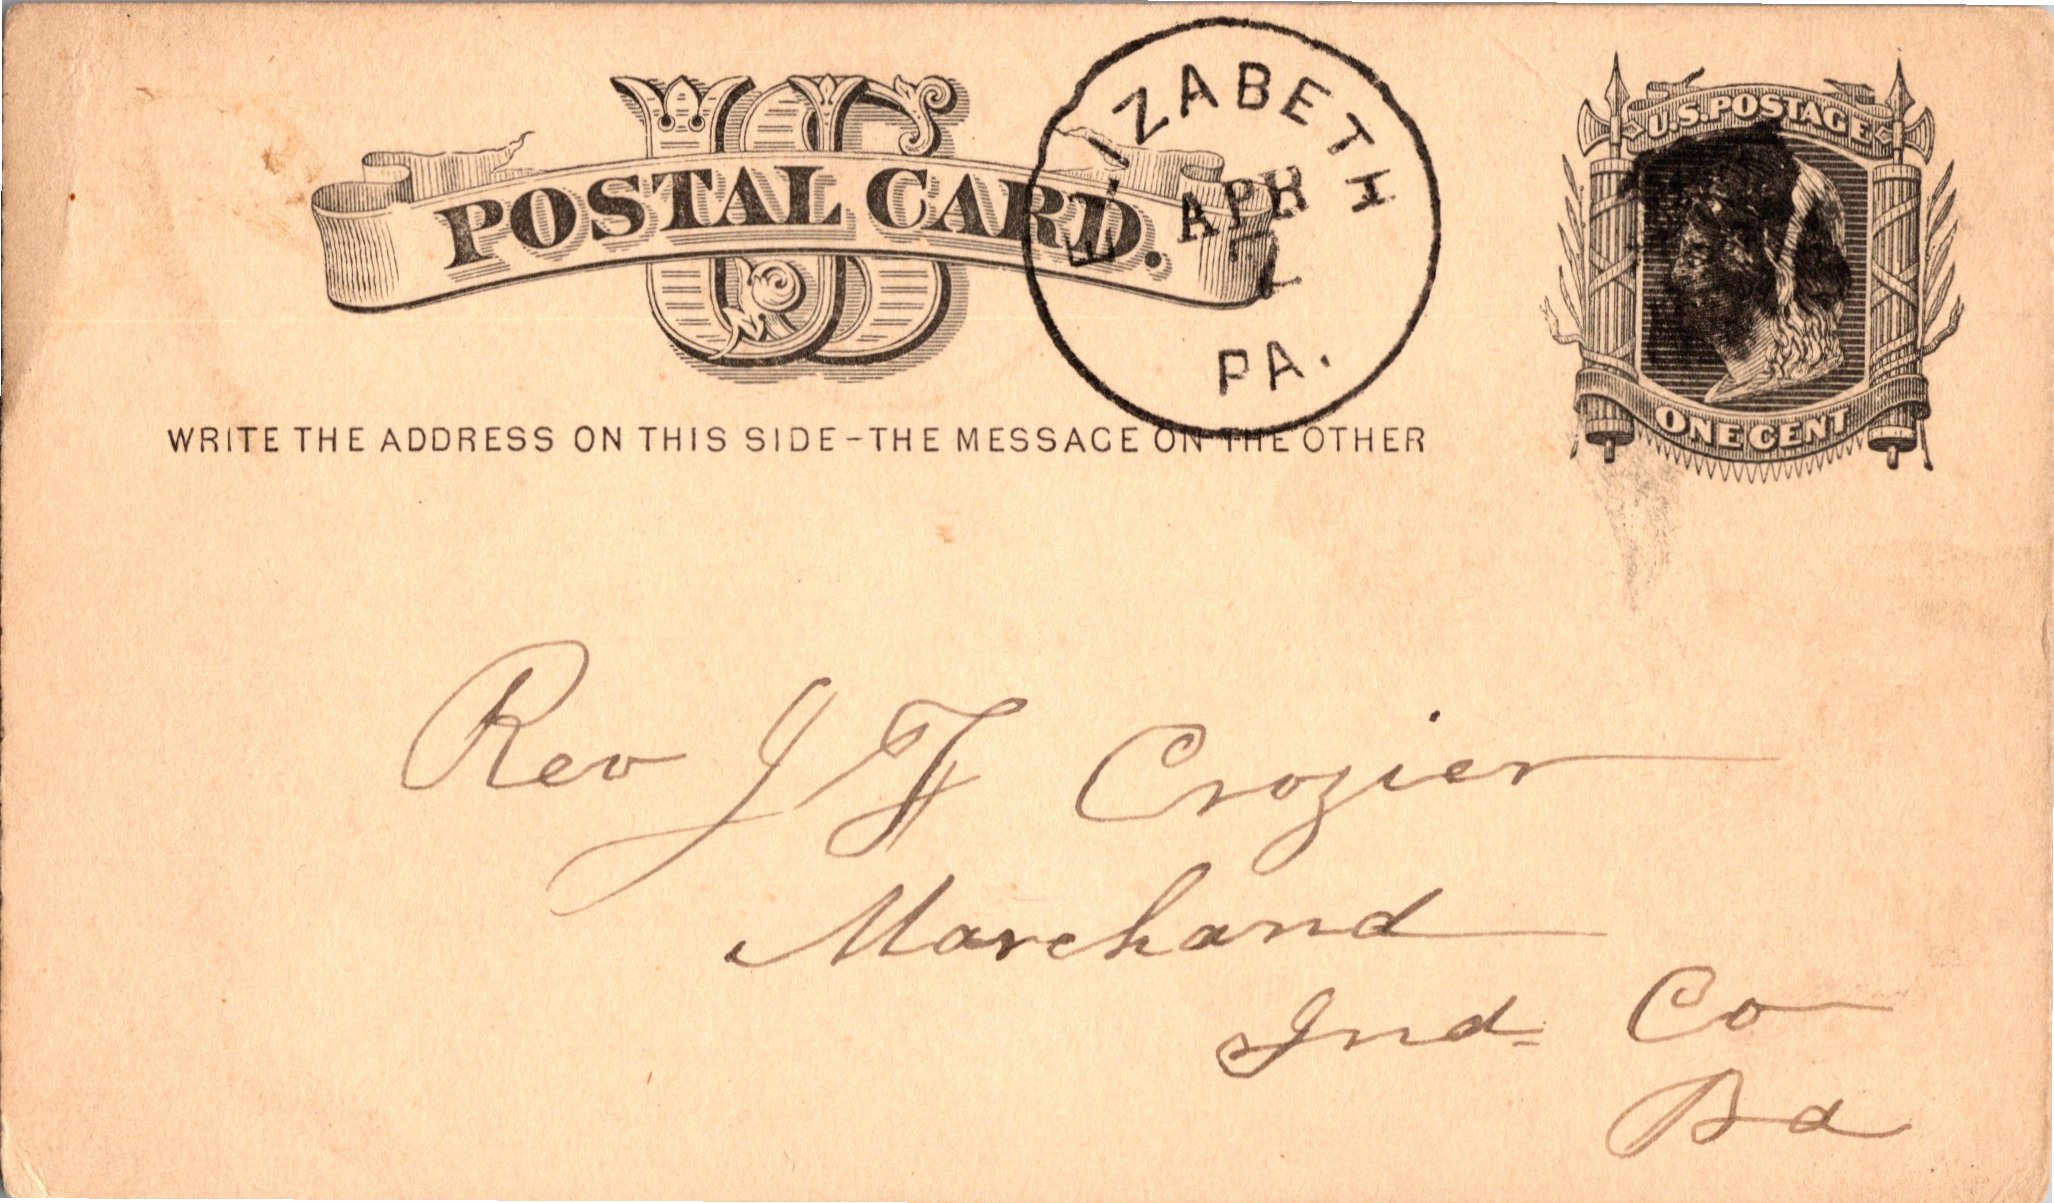 US
POSTAL CARD.
ELIZABETH
APR
7
PA.
U.S. POSTAGE
ONE CENT
WRITE THE ADDRESS ON THIS SIDE-THE MESSAGE ON THE OTHER
Rev J F Crozier
Marchand
Ind. Co
Pa